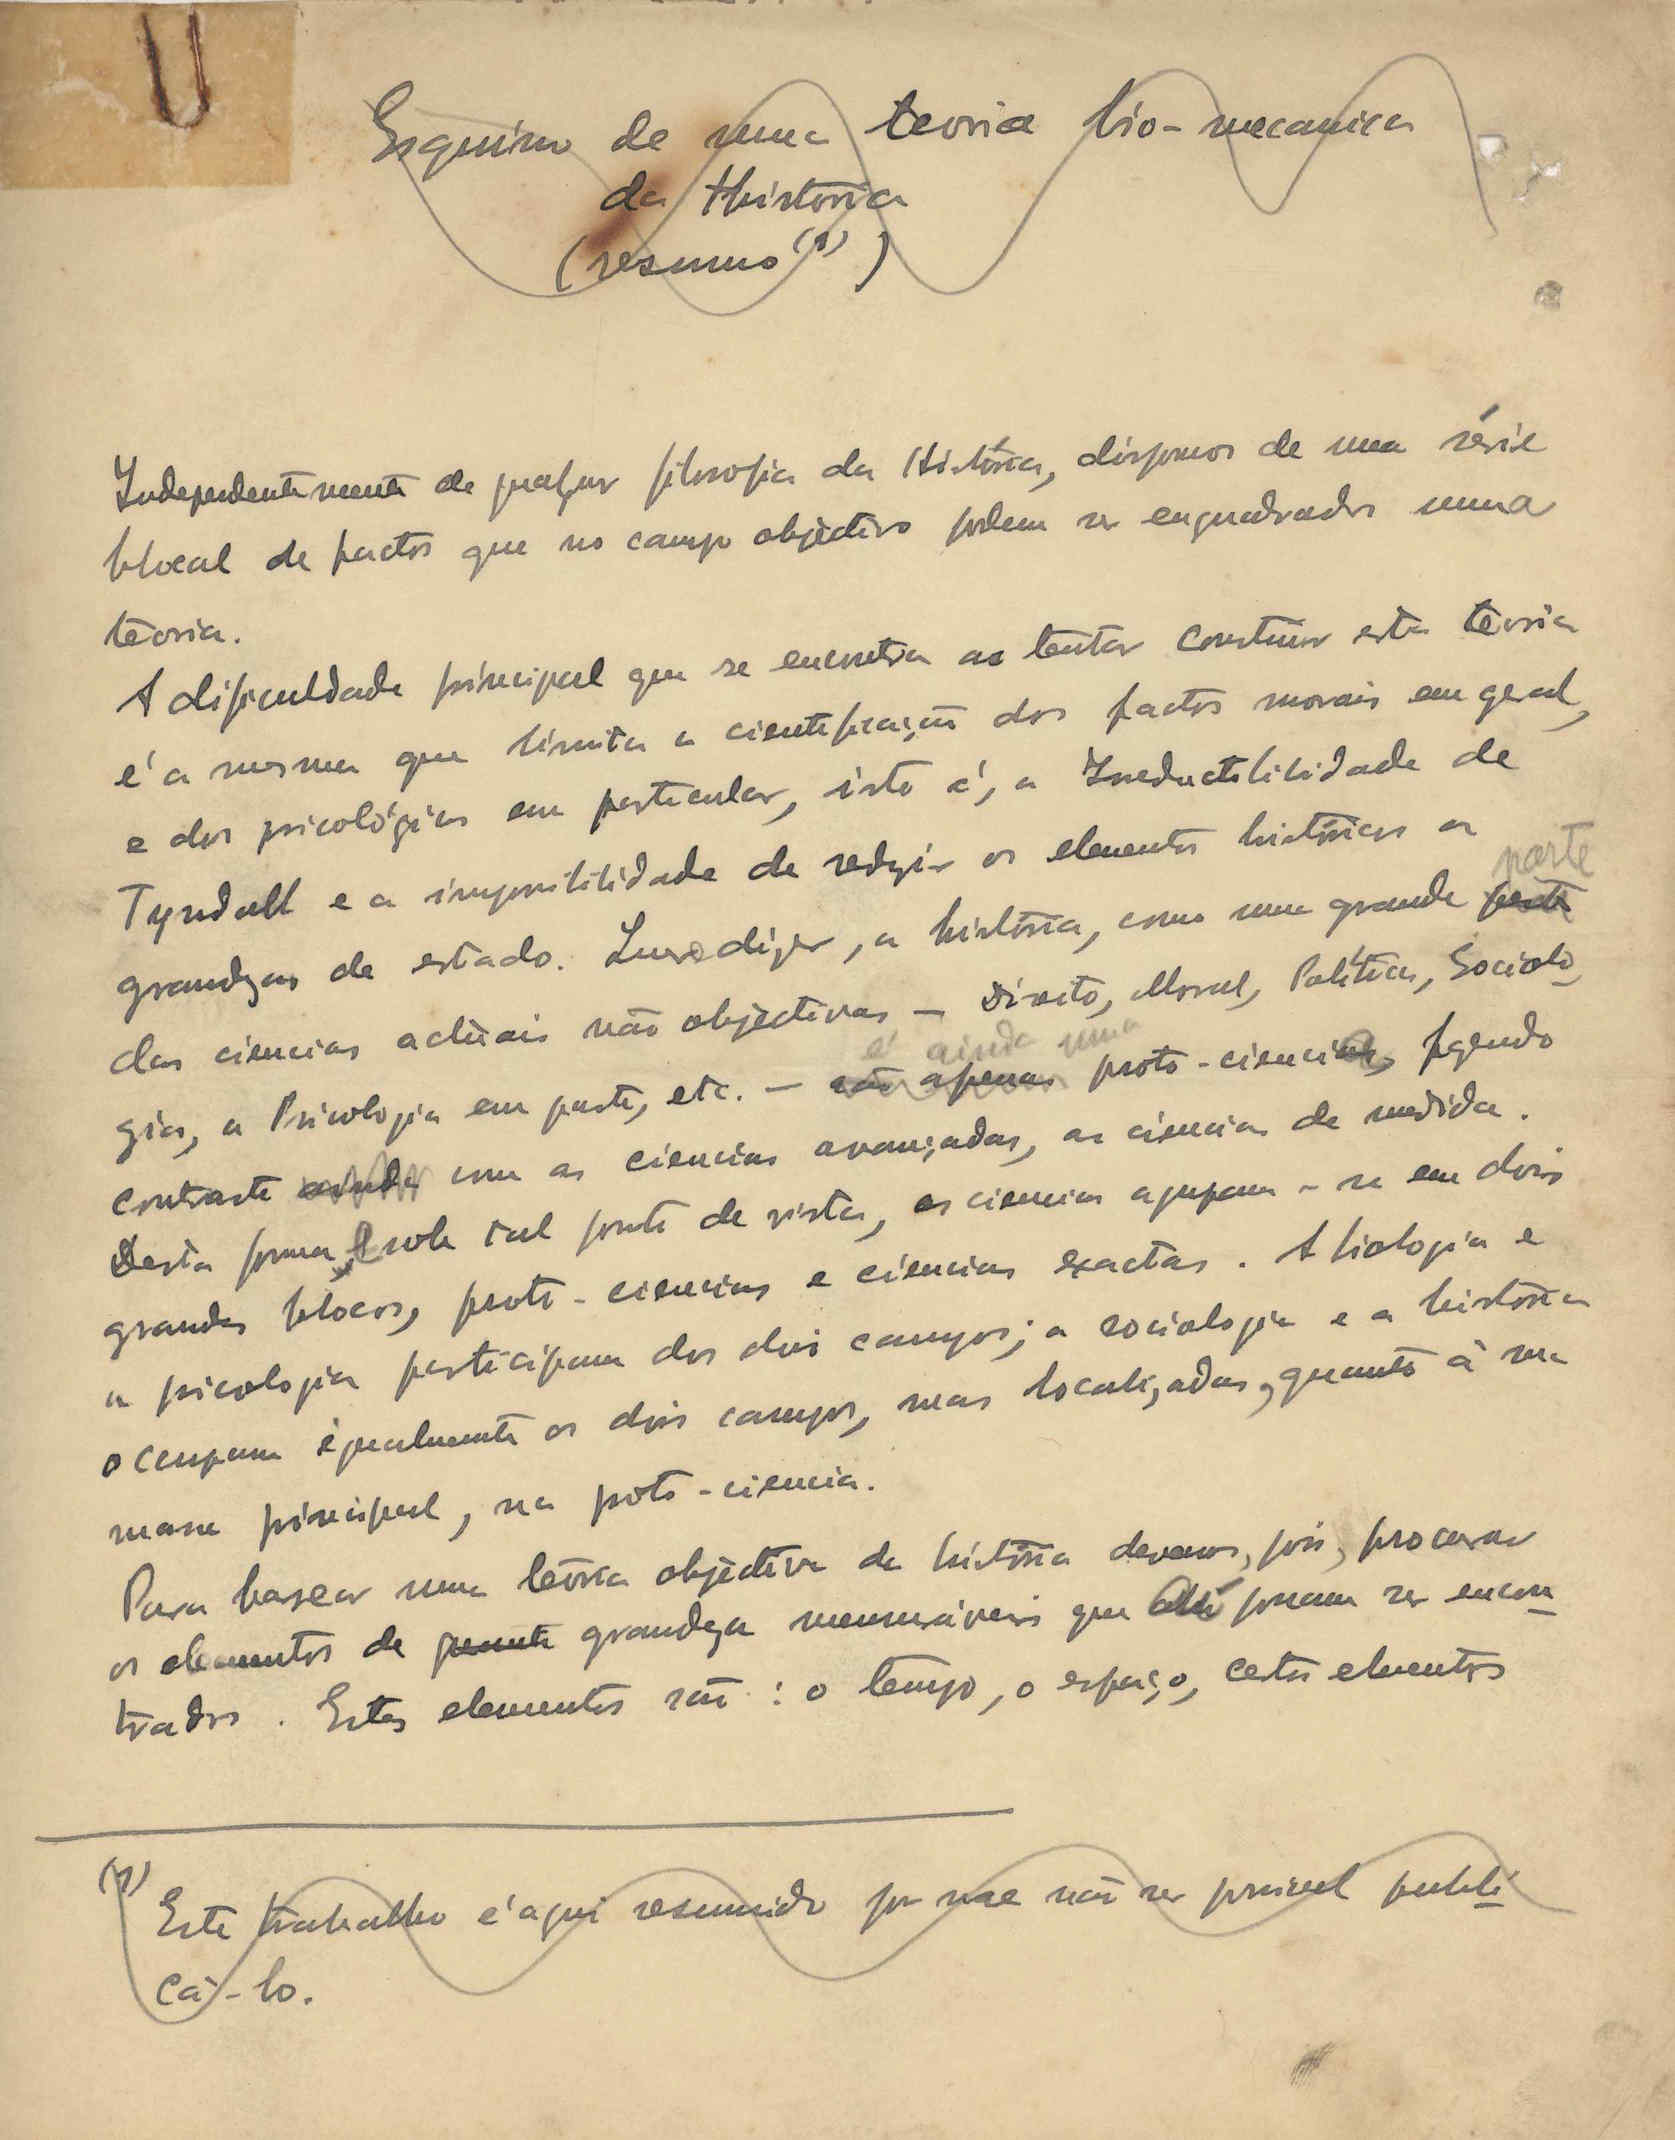 Esquêma de uma teoria bio-mecanica
da História
(resumo (1))
Independentemente de qualquer filosofia da História, dispomos de uma série
blocal de factos que no campo objectivo podem ser enquadrados numa
teoria.
A dificuldade principal que se encontra ao tentar construir esta teoria
é a mesma que limita a cientificação dos factos morais em geral,
e dos psicológicos em particular, isto é, a Ineductibilidade de
Tyndall e a impossibilidade de reduzir os elementos históricos a
parte
grandezas de estado. Quer dizer, a história, como uma grande parte
das ciencias actuais não objectivas – Direito, Moral, Política, Sociolo-
é ainda uma
gia, a Psicologia em parte, etc. – são apenas proto-ciencia, fazendo
contraste ainda com as ciencias avançadas, as ciencias de medida.
Desta forma, e sob tal ponto de vista, as ciencias agrupam-se em dois
grandes blocos, proto-ciencias e ciencias exactas. A biologia e
a psicologia participam dos dois campos; a sociologia e a história
ocupam igualmente os dois campos, mas localizadas, quanto à sua
massa principal, na proto-ciencia.
Para basear uma teoria objectiva da história devemos, pois, procurar
os elementos de grandeza mensuráveis que ali possam ser encon-
trados. Estes elementos são: o tempo, o espaço, certos elementos
(1) Este trabalho é aqui resumido por me não ser possivel publi-
cá-lo.